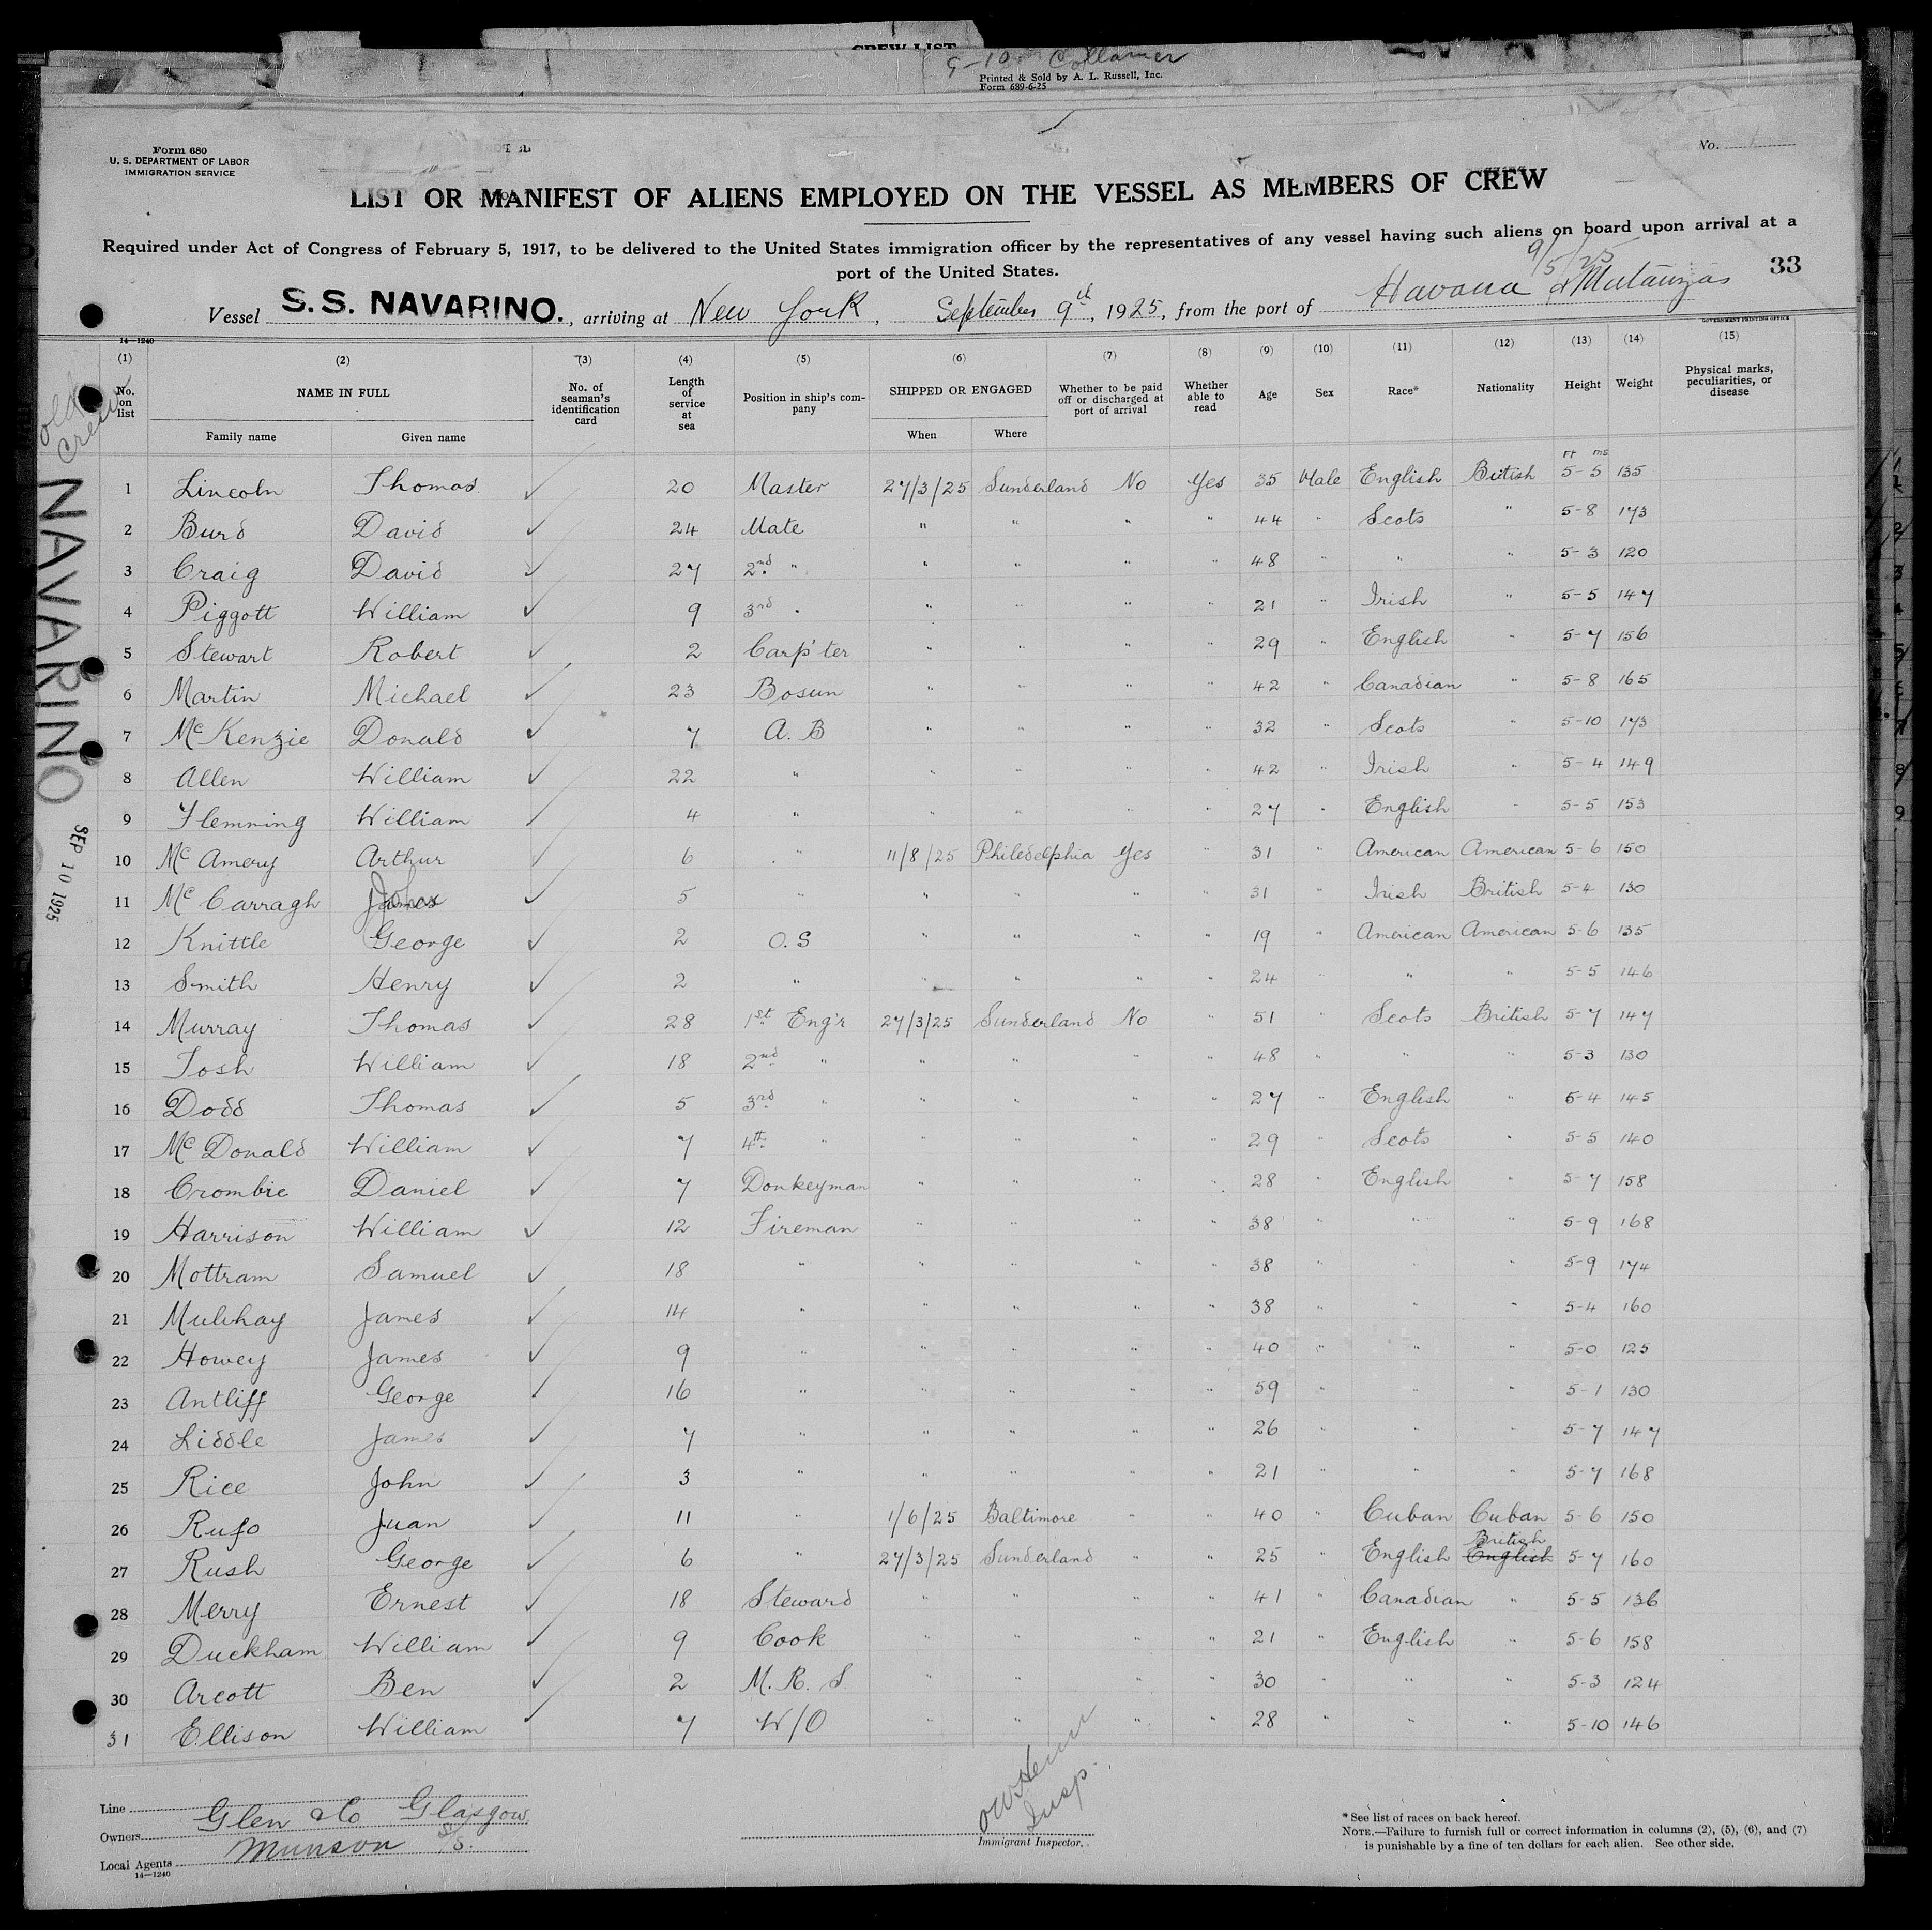 CREW LIST
9-10 Collamer
Printed & Sold by A. L. Russell, Inc.
Form 689-6-25
Form 680
U. S. DEPARTMENT OF LABOR
IMMIGRATION SERVICE
No.
LIST OR MANIFEST OF ALIENS EMPLOYED ON THE VESSEL AS MEMBERS OF CREW
Required under Act of Congress of February 5, 1917, to be delivered to the United States immigration officer by the representatives of any vessel having such aliens on board upon arrival at a
port of the United States.
9/5/25
33
Vessel S.S. NAVARINO., arriving at New York, September 9th, 1925, from the port of Havana & Mutanzas
14—1240
GOVERNMENT PRINTING OFFICE
(1) (2) (3) (4) (5) (6) (7) (8) (9) (10) (11) (12) (13) (14) (15)
No. on list NAME IN FULL No. of seaman's identification card Length of service at sea Position in ship's company SHIPPED OR ENGAGED Whether to be paid off or discharged at port of arrival Whether able to read Age Sex Race* Nationality Height Weight Physical marks, peculiarities, or disease
Family name Given name When Where
old crew
NAVARINO
SEP 10 1925
Ft ins
1 Lincoln Thomas ✓ 20 Master 27/3/25 Sunderland No Yes 35 Male English British 5-5 135
2 Burd David ✓ 24 Mate " " " " 44 " Scots " 5-8 173
3 Craig David ✓ 27 2nd " " " " " 48 " " " 5-3 120
4 Piggott William ✓ 9 3rd " " " " " 21 " Irish " 5-5 147
5 Stewart Robert ✓ 2 Carp'ter " " " " 29 " English " 5-7 156
6 Martin Michael ✓ 23 Bosun " " " " 42 " Canadian " 5-8 165
7 McKenzie Donald ✓ 7 A. B " " " " 32 " Scots " 5-10 173
8 Allen William ✓ 22 " " " " " 42 " Irish " 5-4 149
9 Flemming William ✓ 4 " " " " " 27 " English " 5-5 153
10 McAmery Arthur ✓ 6 " 11/8/25 Philedelphia Yes " 31 " American American 5-6 150
11 McCarragh John ✓ 5 " " " " " 31 " Irish British 5-4 130
12 Knittle George ✓ 2 O. S " " " " 19 " American American 5-6 135
13 Smith Henry ✓ 2 " " " " " 24 " " " 5-5 146
14 Murray Thomas ✓ 28 1st Eng'r 27/3/25 Sunderland No " 51 " Scots British 5-7 147
15 Tosh William ✓ 18 2nd " " " " " 48 " " " 5-3 130
16 Dodd Thomas ✓ 5 3rd " " " " " 27 " English " 5-4 145
17 McDonald William ✓ 7 4th " " " " " 29 " Scots " 5-5 140
18 Crombie Daniel ✓ 7 Donkeyman " " " " 28 " English " 5-7 158
19 Harrison William ✓ 12 Fireman " " " " 38 " " " 5-9 168
20 Mottram Samuel ✓ 18 " " " " " 38 " " " 5-9 174
21 Mulvhay James ✓ 14 " " " " " 38 " " " 5-4 160
22 Howey James ✓ 9 " " " " " 40 " " " 5-0 125
23 Antliff George ✓ 16 " " " " " 59 " " " 5-1 130
24 Liddle James ✓ 7 " " " " " 26 " " " 5-7 147
25 Rice John ✓ 3 " " " " " 21 " " " 5-7 168
26 Rufo Juan ✓ 11 " 1/6/25 Baltimore " " 40 " Cuban Cuban 5-6 150
27 Rush George ✓ 6 " 27/3/25 Sunderland " " 25 " English English British 5-7 160
28 Merry Ernest ✓ 18 Steward " " " " 41 " Canadian " 5-5 136
29 Duckham William ✓ 9 Cook " " " " 21 " English " 5-6 158
30 Arcott Ben ✓ 2 M. R. S. " " " " 30 " " " 5-3 124
31 Ellison William ✓ 7 W/O " " " " 28 " " " 5-10 146
Line
Owners Glen & Co Glasgow
Local Agents Munson S/S.
14—1240
Insp.
Immigrant Inspector.
* See list of races on back hereof.
NOTE.—Failure to furnish full or correct information in columns (2), (5), (6), and (7)
is punishable by a fine of ten dollars for each alien. See other side.